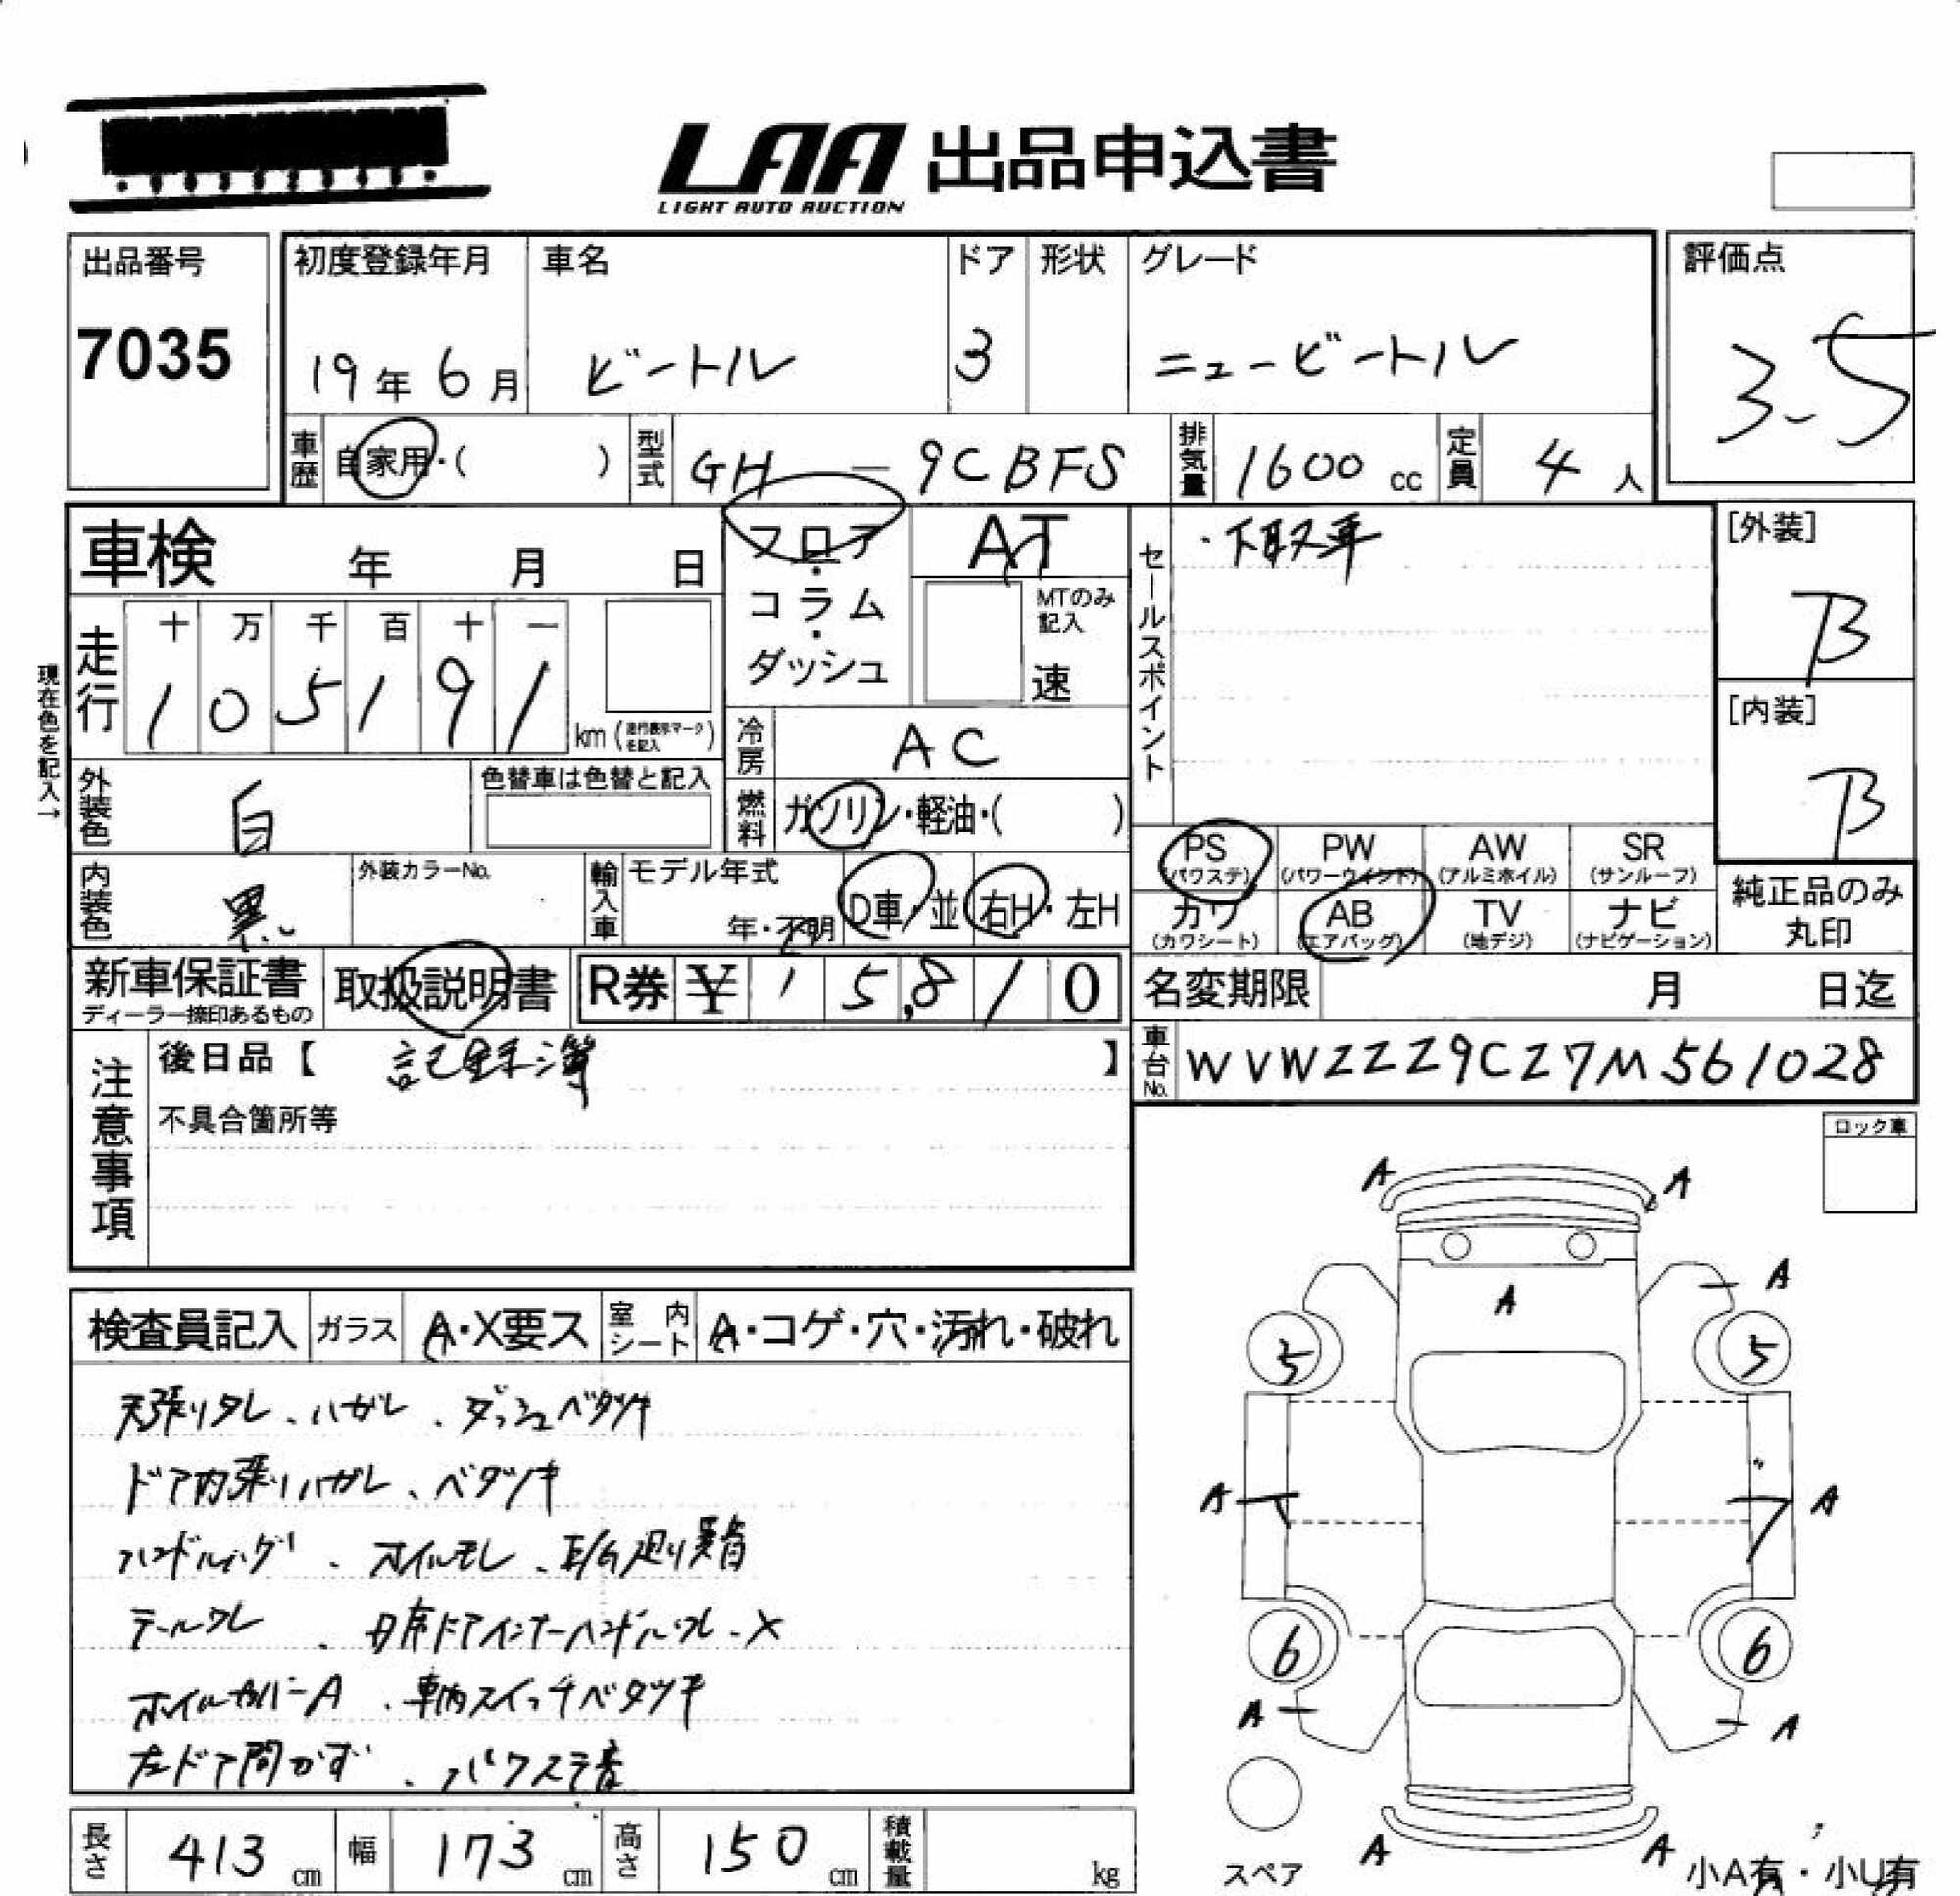 LAA 出品申込書
LIGHT AUTO AUCTION
出品番号 初度登録年月 車名 ドア 形状 グレード 評価点
7035 19年 6月 ビートル 3 ニュービートル 3.5
車歴 自家用・( ) 型式 GH - 9CBFS 排気量 1600 cc 定員 4 人
車検 年 月 日 フロア・コラム・ダッシュ AT
MTのみ記入 速
セールスポイント ・下取車
[外装] B
[内装] B
現在色を記入→
走行 十 万 千 百 十 一
1 0 5 1 9 1 km
冷房 AC
外装色 白 色替車は色替と記入
燃料 ガソリン・軽油・( )
内装色 黒 外装カラーNo. 輸入車 モデル年式 年・不明 D車・並 右H・左H
PS (パワステ) PW (パワーウインド) AW (アルミホイル) SR (サンルーフ)
カワ (カワシート) AB (エアバッグ) TV (地デジ) ナビ (ナビゲーション)
純正品のみ丸印
新車保証書 ディーラー捺印あるもの 取扱説明書 R券 ¥ 1 5,8 1 0
名変期限 月 日迄
車台No. WVWZZZ9CZ7M561028
注意事項 後日品【 記録簿 】
不具合箇所等
ロック車
検査員記入 ガラス A・X要ス 室内シート A・コゲ・穴・汚れ・破れ
天張りタレ、ハガレ、ダッシュベタツキ
ドア内張りハガレ、ベタツキ
オイルモレ、E/G廻り異音
テールワレ、D席ドアインナーハンドルワレ・X
ホイルカバーA、車内スイッチベタツキ
左ドア開かず、パワステ音
A A
A A
5 5
A A
6 6
A A
A A
スペア
小A有・小U有
長さ 413 cm 幅 173 cm 高さ 150 cm 積載量 kg